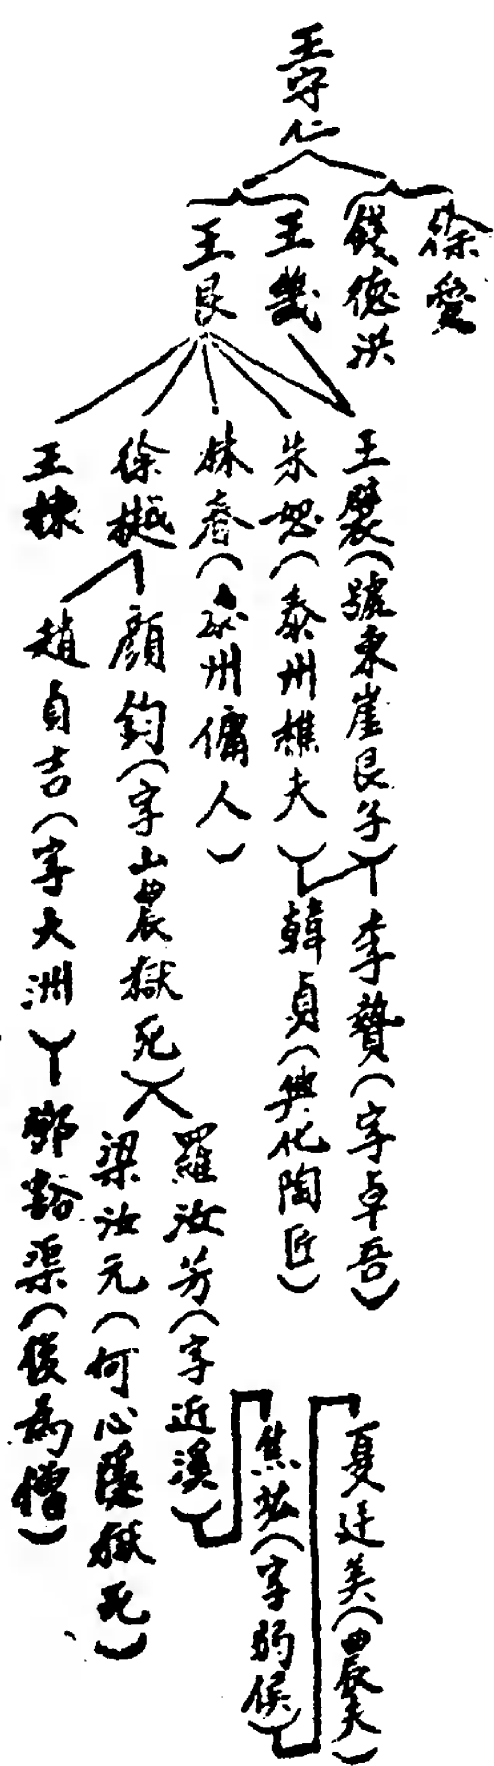 王守仁
徐愛
錢德洪
王畿
王艮
王襞（號東崖艮子）
朱恕（泰州樵夫）
林春（泰州傭人）
徐樾
王棟
李贄（字卓吾）
韓貞（興化陶匠）
顏鈞（字山農獄死）
趙貞吉（字大洲）
羅汝芳（字近溪）
梁汝元（何心隱獄死）
鄧豁渠（後為僧）
焦竑（字弱侯）
夏廷美（農夫）